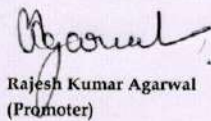 Agarwal
Rajesh Kumar Agarwal
(Promoter)